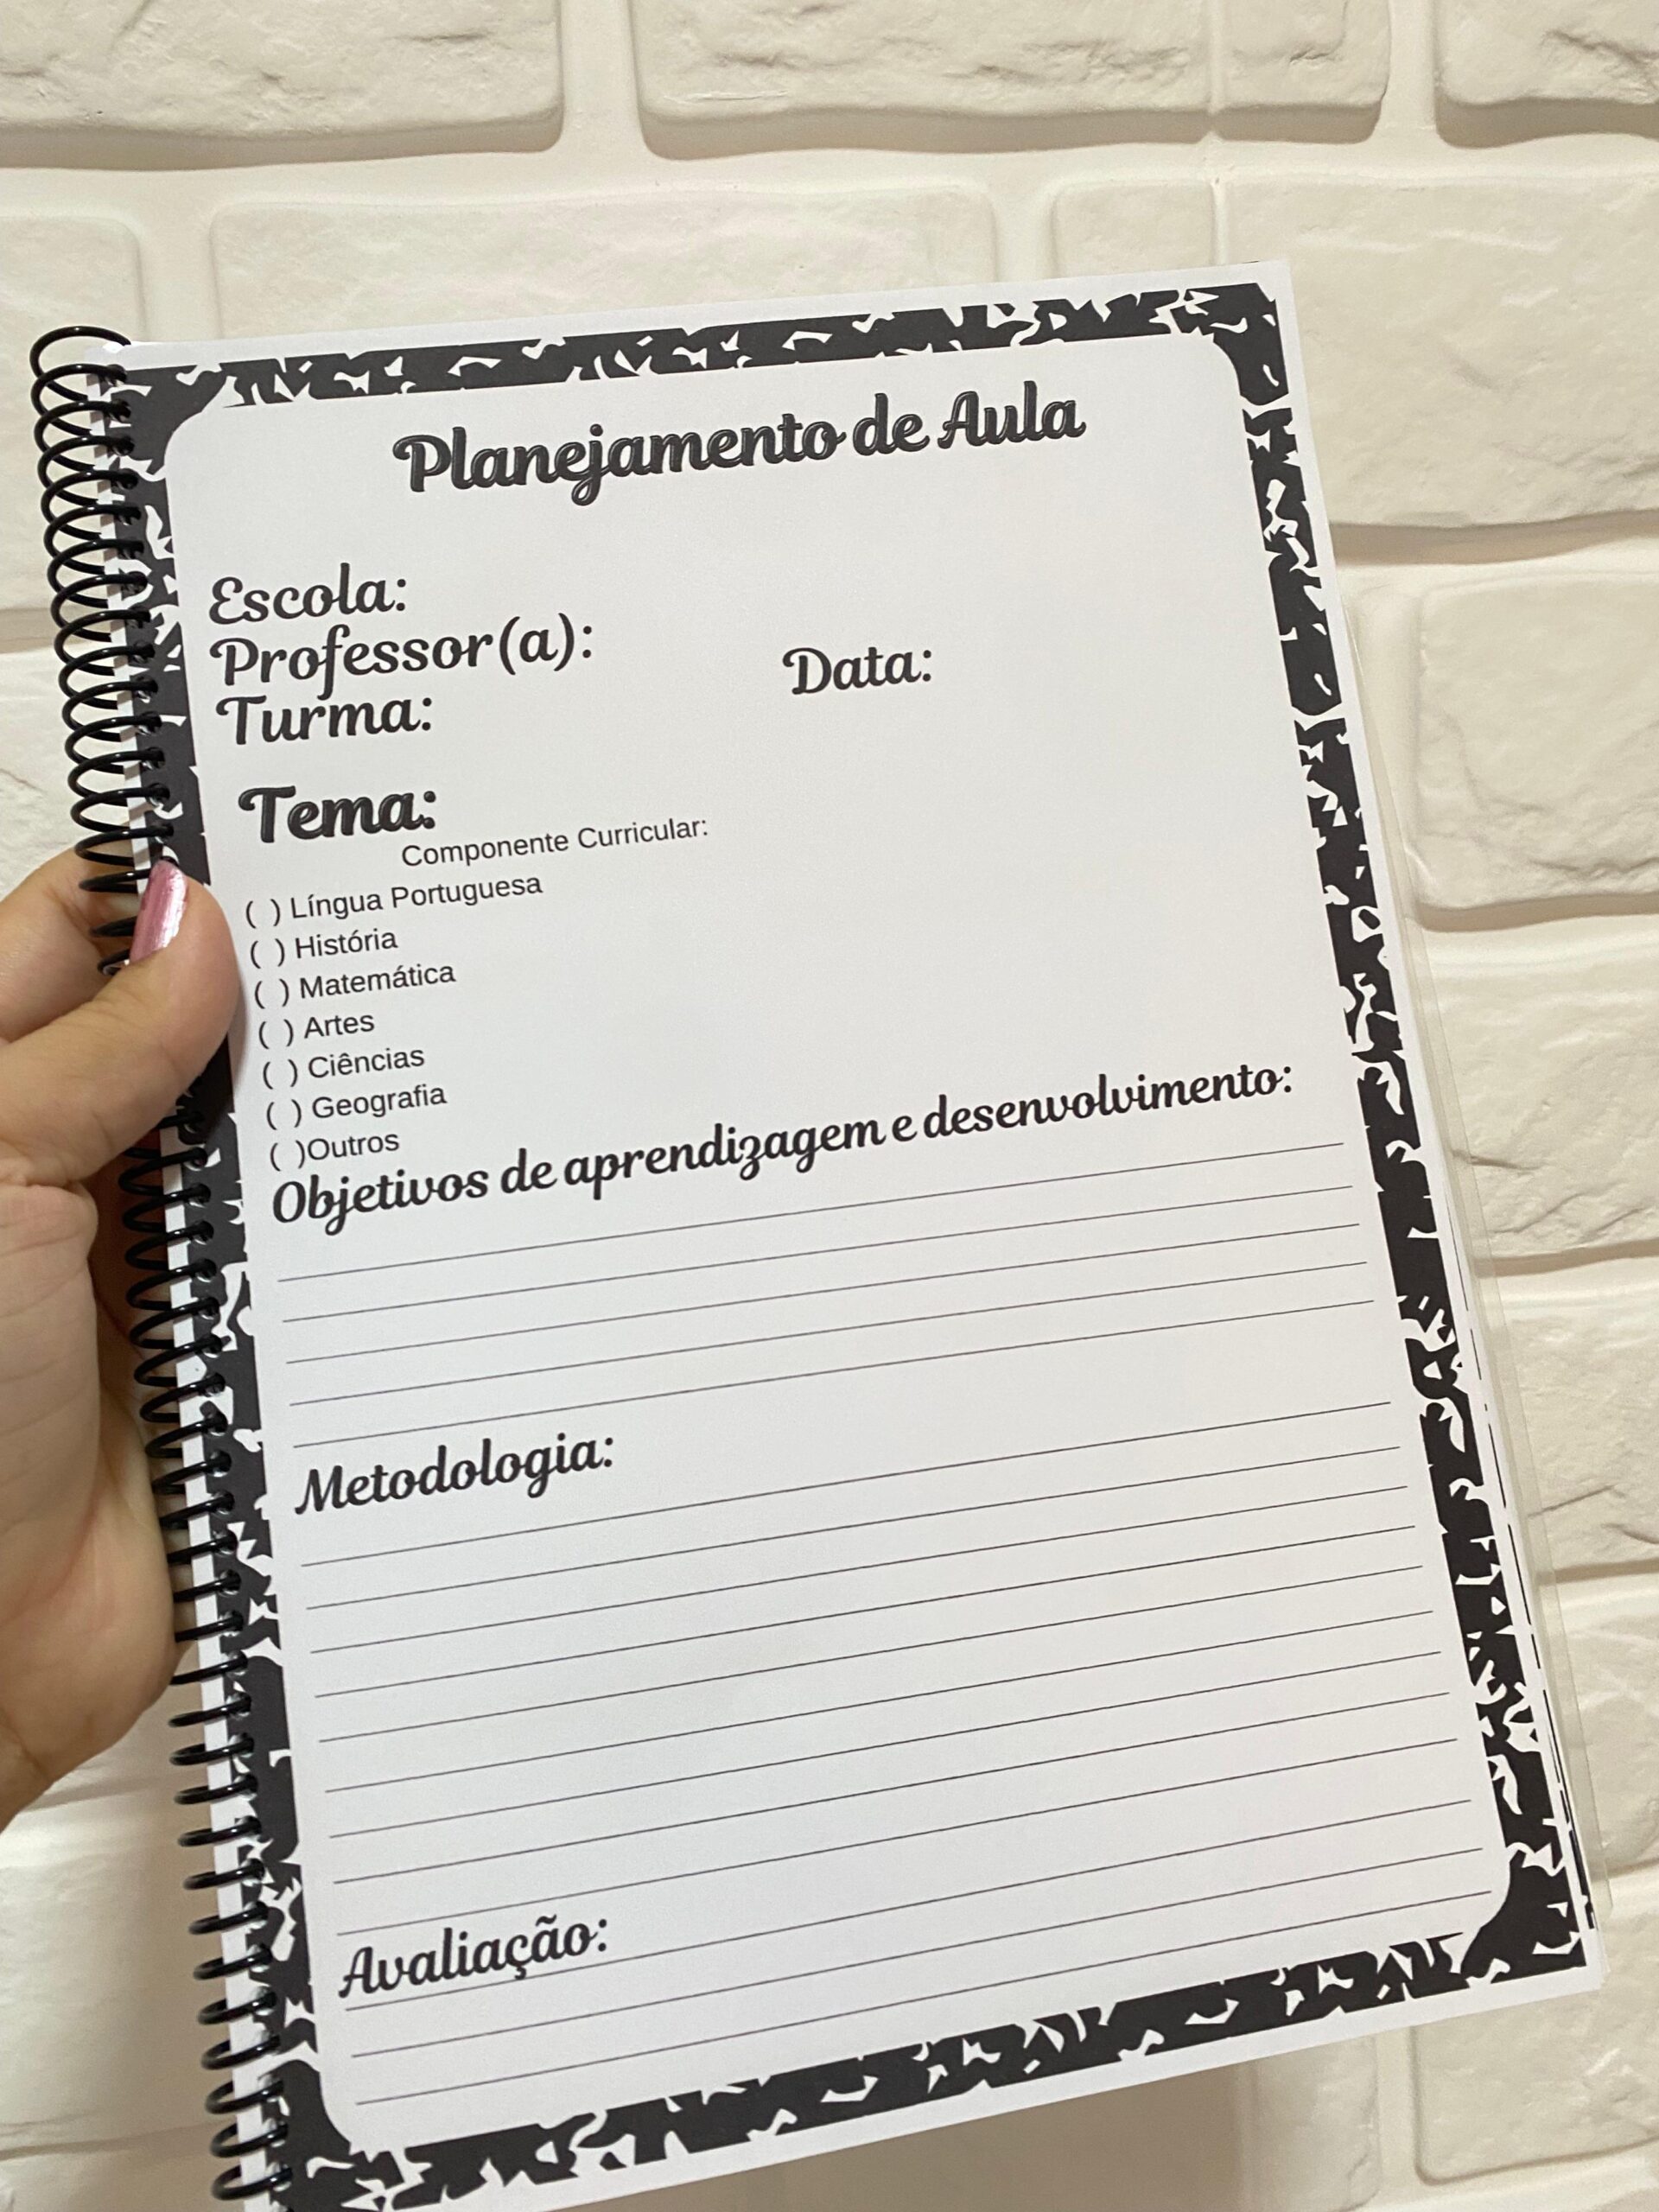 Planejamento de Aula
Escola:
Professor(a):
Data:
Turma:
Tema:
Componente Curricular:
( ) Língua Portuguesa
( ) História
( ) Matemática
( ) Artes
( ) Ciências
( ) Geografia
( )Outros
Objetivos de aprendizagem e desenvolvimento:
Metodologia:
Avaliação: